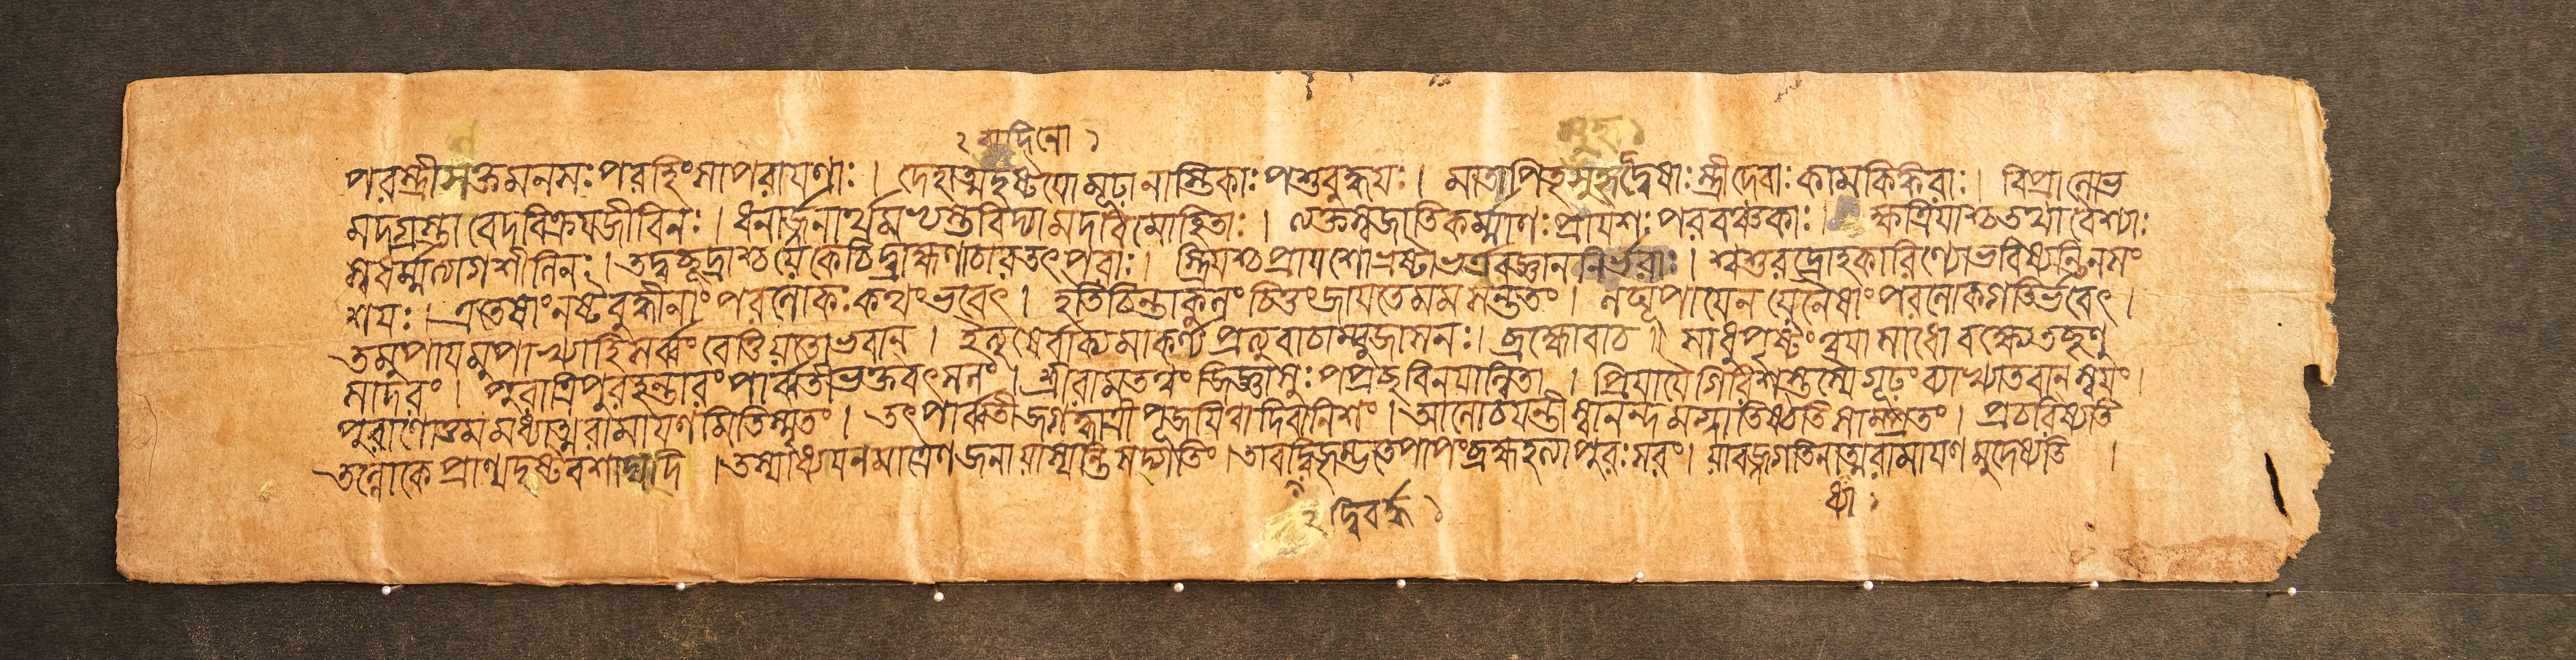 ২ বাদিনো ১
সুহৃ ১
পরস্ত্রীসক্তমনসঃ পরহিংসাপরায়ণাঃ । দেহাত্মদৃষ্টয়ো মূঢ়া নাস্তিকাঃ পশুবুদ্ধয়ঃ । মাতাপিতৃসুহৃদ্দ্বেষাঃ স্ত্রীদেবাঃ কামকিঙ্করাঃ । বিপ্রা লোভ
মদগ্রস্তা বেদবিক্রয়জীবিনঃ । ধনার্জ্জনার্থমভ্যস্তবিদ্যামদবিমোহিতাঃ । ত্যক্তস্বজাতিকর্ম্মাণঃ প্রায়শঃ পরবঞ্চকাঃ । ক্ষত্রিয়াশ্চ তথা বৈশ্যাঃ
স্বধর্ম্মত্যাগশীলিনঃ । তদ্বচ্ছূদ্রাশ্চ যে কেচিদ্ব্রাহ্মণাচারতৎপরাঃ । স্ত্রিয়শ্চ প্রায়শো ভ্রষ্টা ভর্ত্রবজ্ঞাননির্ভয়াঃ । শ্বশুরদ্রোহকারিণ্যো ভবিষ্যন্তি ন সং
শয়ঃ । এতেষাং নষ্টবুদ্ধীনাং পরলোকঃ কথং ভবেৎ । ইতি চিন্তাকুলং চিত্তং জায়তে মম সন্ততং । লঘূপায়েন যেনৈষাং পরলোকগতির্ভবেৎ ।
তমুপায়মুপাখ্যাহি সর্ব্বং বেত্তি যতো ভবান্ । ইত্যৃষের্বাক্যমাকর্ণ্য প্রত্যুবাচাম্বুজাসনঃ । ব্রহ্মোবাচ ॥ সাধু পৃষ্টং ত্বয়া সাধো বক্ষ্যে তচ্ছৃণু
সাদরং । পুরা ত্রিপুরহন্তারং পার্ব্বতী ভক্তবৎসলং । শ্রীরামতত্ত্বং জিজ্ঞাসুঃ পপ্রচ্ছ বিনয়ান্বিতা । প্রিয়ায়ৈ গিরিশস্তস্যৈ গূঢ়ং ব্যাখ্যাতবান্ স্বয়ং ।
পুরাণোত্তমমধ্যাত্মরামায়ণমিতি স্মৃতং । তৎ পার্ব্বতী জগদ্ধাত্রী পূজয়িত্বা দিবানিশং । আলোচয়ন্তী স্বানন্দমগ্না তিষ্ঠতি সাম্প্রতং । প্রচরিষ্যতি
তল্লোকে প্রাণ্যদৃষ্টবশাদ্যদি । তস্যাধ্যয়নমাত্রেণ জনা যাস্যন্তি সদ্গতিং । তাবদ্বিজৃম্ভতে পাপং ব্রহ্মহত্যাপুরঃসরং । যাবজ্জগতি নাত্মরামায়ণমুদেষ্যতি ।
ধ্যা ১